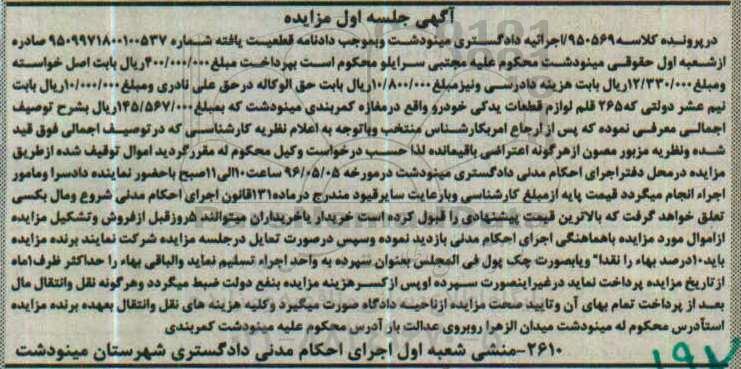 آگهی جلسه اول مزایده
درپرونده کلاسه ۹۵۰۵۶۹/اجرائیه دادگستری مینودشت وبموجب دادنامه قطعیت یافته شماره ۹۵۰۹۹۷۱۸۰۰۱۰۰۵۳۷ صادره
ازشعبه اول حقوقی مینودشت محکوم علیه مجتبی سرایلو محکوم است بپرداخت مبلغ ۴۰۰/۰۰۰/۰۰۰ریال بابت اصل خواسته
ومبلغ ۱۲/۳۳۰/۰۰۰ریال بابت هزینه دادرسی ونیزمبلغ ۱۰/۸۰۰/۰۰۰ریال بابت حق الوکاله درحق علی نادری ومبلغ ۱۰/۰۰۰/۰۰۰ریال بابت
نیم عشر دولتی که ۲۶۵ قلم لوازم قطعات یدکی خودرو واقع درمغازه کمربندی مینودشت که بمبلغ ۱۴۵/۵۶۷/۰۰۰ریال بشرح توصیف
اجمالی معرفی نموده که پس ازارجاع امربکارشناس منتخب وباتوجه به اعلام نظریه کارشناسی که درتوصیف اجمالی فوق قید
شده ونظریه مزبور مصون ازهرگونه اعتراضی باقیمانده لذا حسب درخواست وکیل محکوم له مقررگردید اموال توقیف شده ازطریق
مزایده درمحل دفتراجرای احکام مدنی دادگستری مینودشت درمورخه ۹۶/۰۵/۰۵ ساعت۱۰الی۱۱صبح باحضور نماینده دادسرا ومامور
اجراء انجام میگردد قیمت پایه ازمبلغ کارشناسی وبارعایت سایرقیود مندرج درماده۱۳۱قانون اجرای احکام مدنی شروع ومال بکسی
تعلق خواهد گرفت که بالاترین قیمت پیشنهادی را قبول کرده است خریدار یاخریداران میتوانند ۵روزقبل ازفروش وتشکیل مزایده
ازاموال مورد مزایده باهماهنگی اجرای احکام مدنی بازدید نموده وسپس درصورت تمایل درجلسه مزایده شرکت نمایند برنده مزایده
باید۱۰درصد بهاء را نقدا" ویابصورت چک پول فی المجلس بعنوان سپرده به واحد اجراء تسلیم نماید والباقی بهاء را حداکثر ظرف۱ماه
ازتاریخ مزایده پرداخت نماید درغیراینصورت سپرده اوپس ازکسرهزینه مزایده بنفع دولت ضبط میگردد وهرگونه نقل وانتقال مال
بعد از پرداخت تمام بهای آن وتایید صحت مزایده ازناحیه دادگاه صورت میگیرد وکلیه هزینه های نقل وانتقال بعهده برنده مزایده
استآدرس محکوم له مینودشت میدان الزهرا روبروی عدالت بار آدرس محکوم علیه مینودشت کمربندی
۲۶۱۰-منشی شعبه اول اجرای احکام مدنی دادگستری شهرستان مینودشت